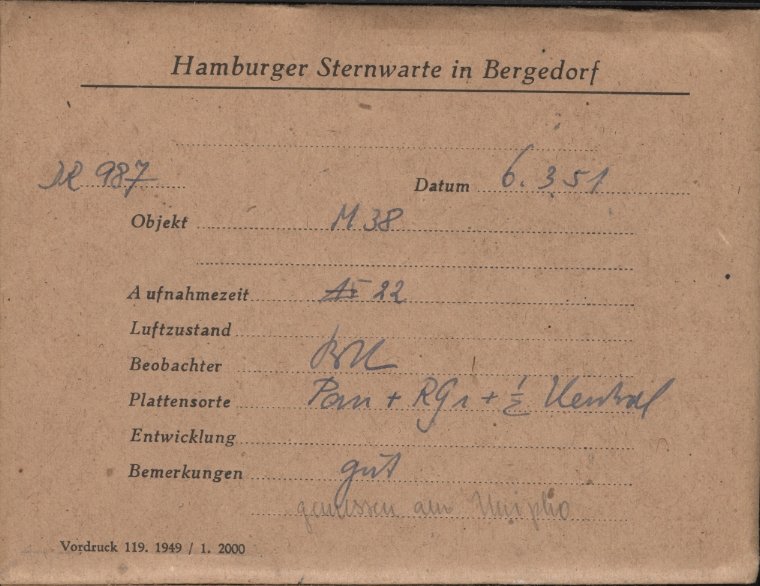 Hamburger Sternwarte in Bergedorf
987 Datum 6. 3 51
Objekt M 38
Aufnahmezeit 22
Luftzustand
Beobachter
Plattensorte Pan + RG1 + ½ Neutral
Entwicklung
Bemerkungen gut
gemessen am Unipho
Vordruck 119. 1949 / 1. 2000